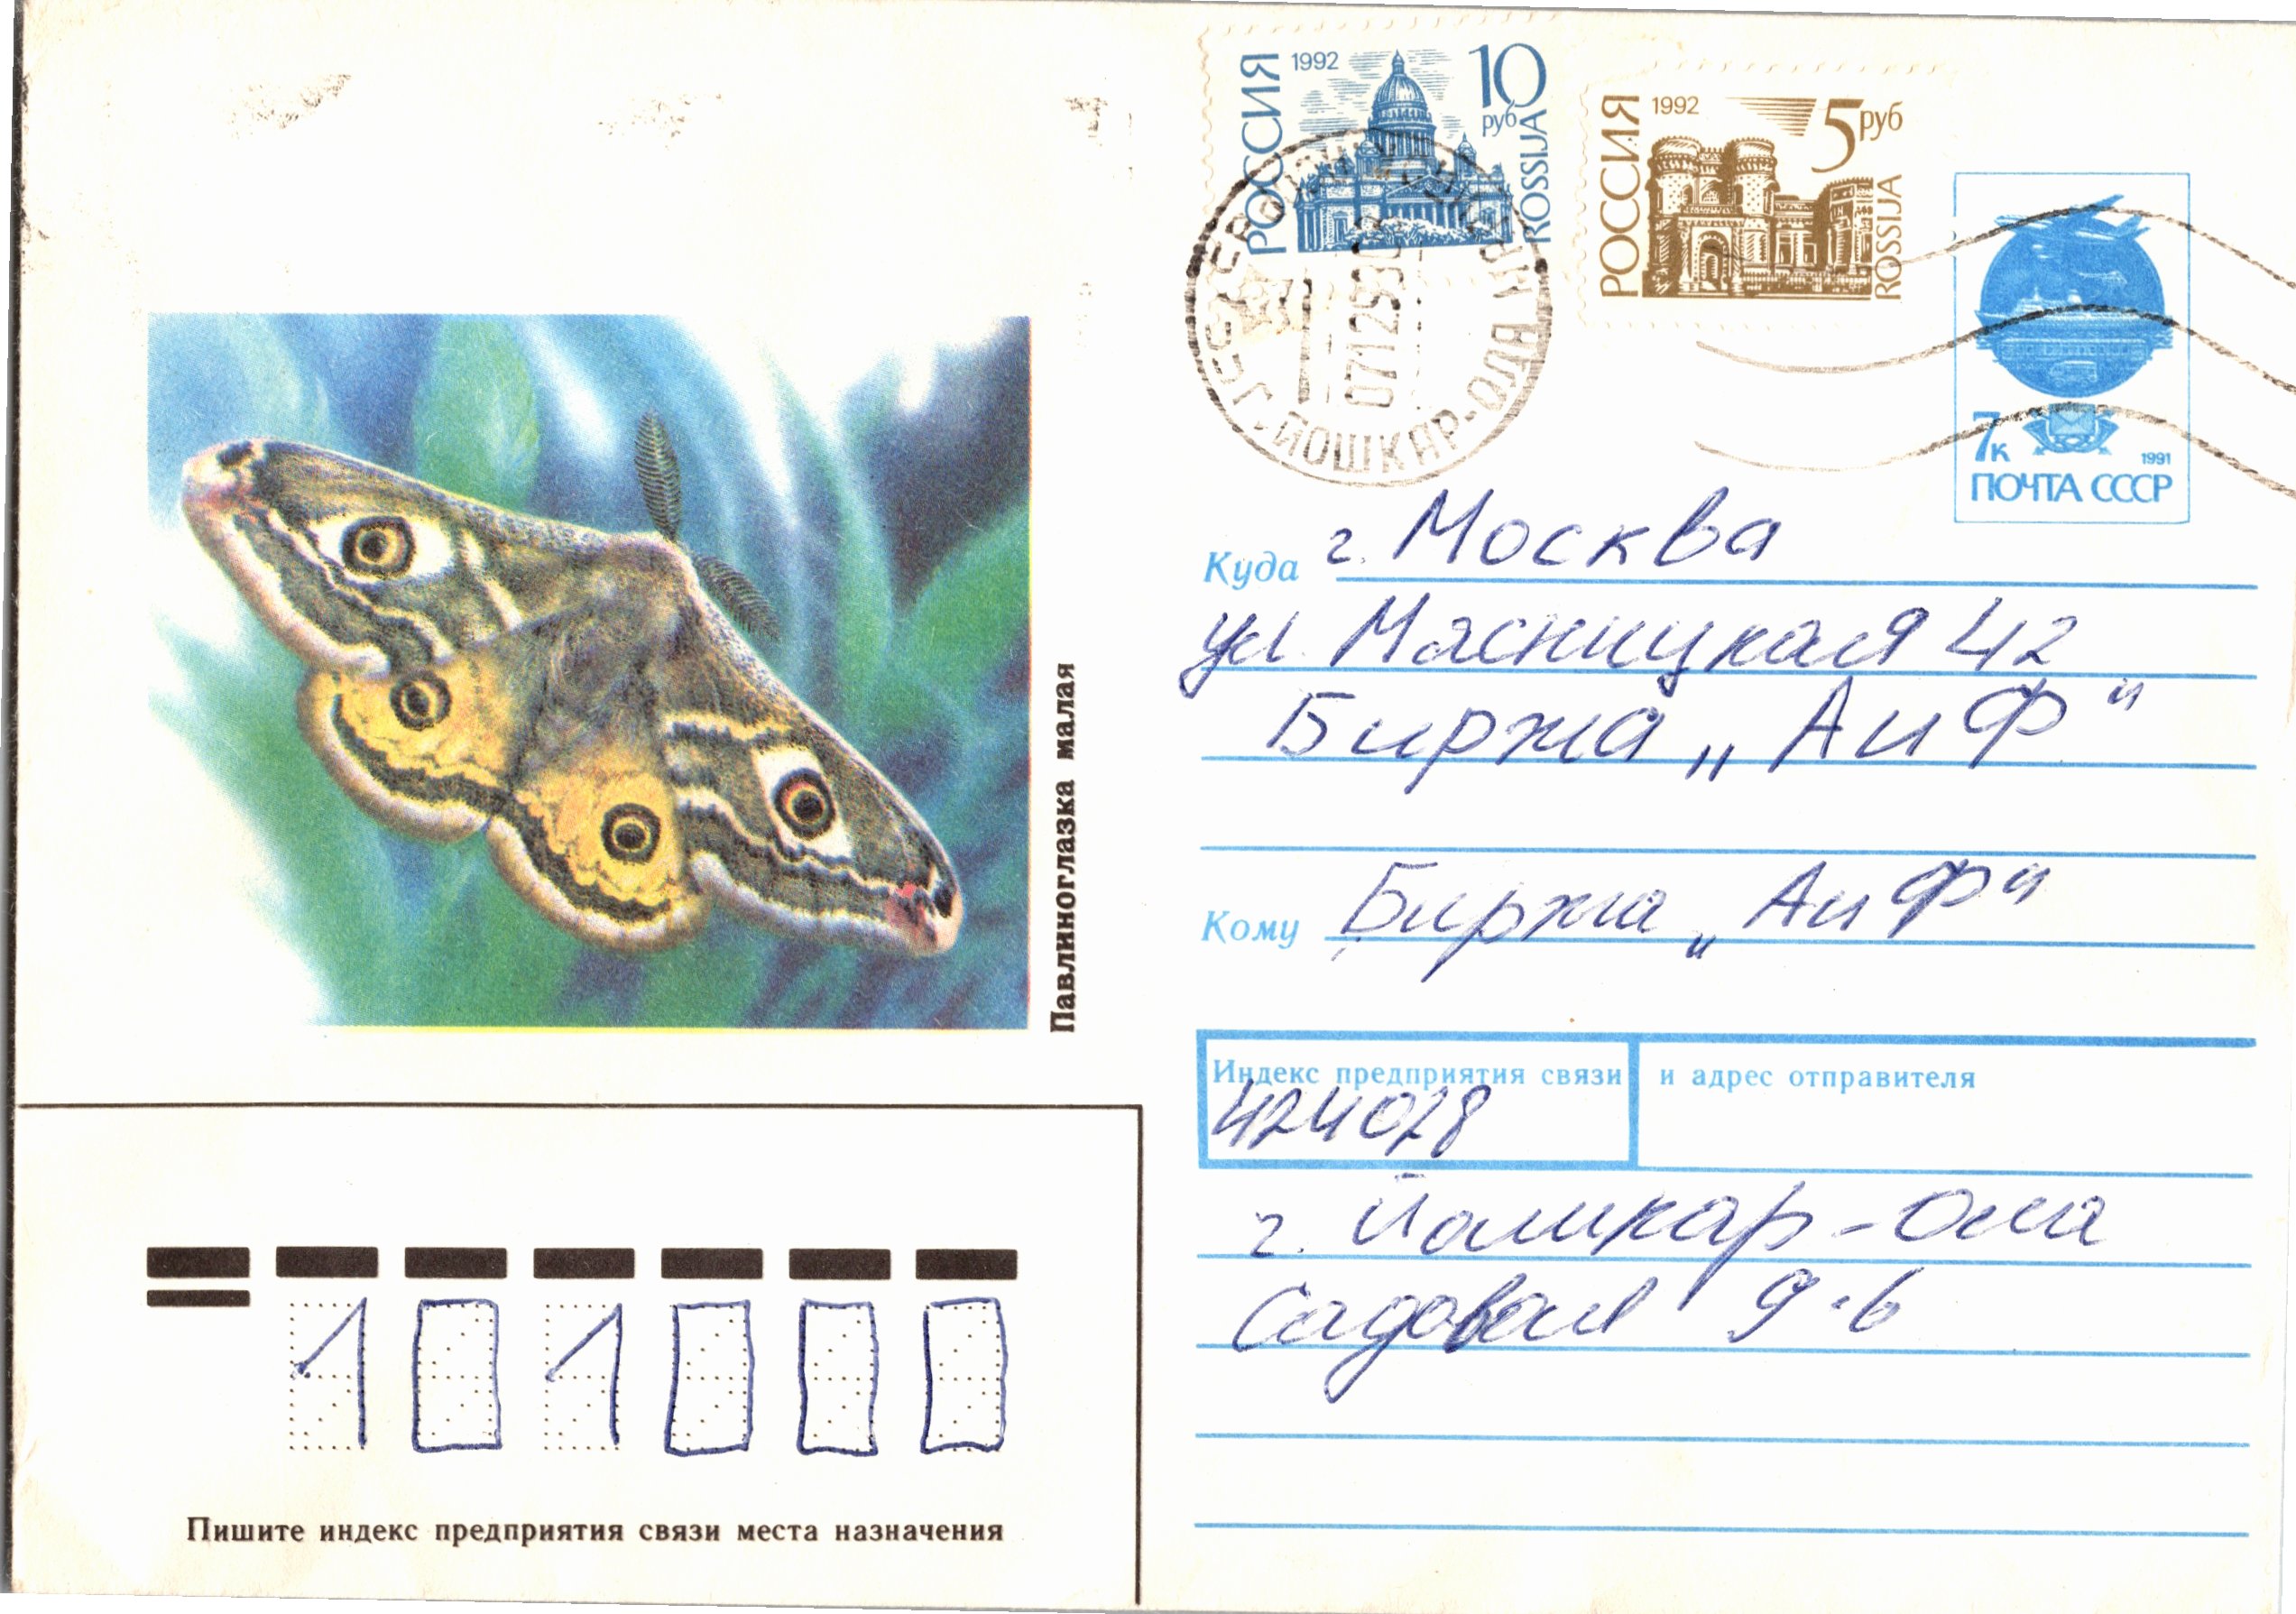 РОССИЯ 1992 10 руб ROSSIJA
РОССИЯ 1992 5 руб ROSSIJA
Г. ЙОШКАР-ОЛА
7к 1991
ПОЧТА СССР
Павлиноглазка малая
Куда г. Москва
ул. Мясницкая 42
Биржа „АиФ"
Кому Биржа „АиФ"
Индекс предприятия связи и адрес отправителя
424028
г. Йошкар-Ола
Садовая 9-6
101000
Пишите индекс предприятия связи места назначения